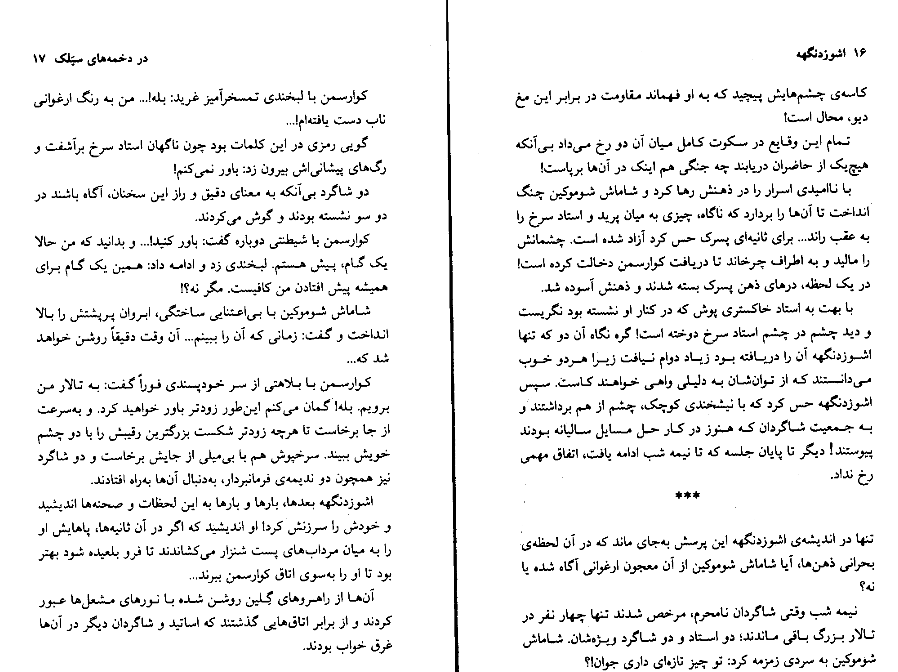 ۱۶ اشوزدنگهه
کاسه‌ی چشم‌هایش پیچید که به او فهماند مقاومت در برابر این مغ
دیو، محال است!
تمام این وقایع در سکوت کامل میان آن دو رخ می‌داد بی‌آنکه
هیچ‌یک از حاضران دریابند چه جنگی هم اینک در آن‌ها برپاست!
با ناامیدی اسرار را در ذهنش رها کرد و شاماش شوموکین چنگ
انداخت تا آن‌ها را بردارد که ناگاه، چیزی به میان پرید و استاد سرخ را
به عقب راند... برای ثانیه‌ای پسرک حس کرد آزاد شده است. چشمانش
را مالید و به اطراف چرخاند تا دریافت کوارسمن دخالت کرده است!
در یک لحظه، درهای ذهن پسرک بسته شدند و ذهنش آسوده شد.
با بهت به استاد خاکستری پوش که در کنار او نشسته بود نگریست
و دید چشم در چشم استاد سرخ دوخته است! گره نگاه آن دو که تنها
اشوزدنگهه آن را دریافته بود زیاد دوام نیافت زیرا هردو خوب
می‌دانستند که از توان‌شان به دلیلی واهی خواهند کاست. سپس
اشوزدنگهه حس کرد که با نیشخندی کوچک، چشم از هم برداشتند و
به جمعیت شاگردان که هنوز در کار حل مسایل سالیانه بودند
پیوستند! دیگر تا پایان جلسه که تا نیمه شب ادامه یافت، اتفاق مهمی
رخ نداد.
***
تنها در اندیشه‌ی اشوزدنگهه این پرسش به‌جای ماند که در آن لحظه‌ی
بحرانی ذهن‌ها، آیا شاماش شوموکین از آن معجون ارغوانی آگاه شده یا
نه؟
نیمه شب وقتی شاگردان نامحرم، مرخص شدند تنها چهار نفر در
تالار بزرگ باقی ماندند؛ دو استاد و دو شاگرد ویژه‌شان. شاماش
شوموکین به سردی زمزمه کرد: تو چیز تازه‌ای داری جوان!؟
در دخمه‌های سیلک ۱۷
کوارسمن با لبخندی تمسخرآمیز غرید: بله!... من به رنگ ارغوانی
ناب دست یافته‌ام!...
گویی رمزی در این کلمات بود چون ناگهان استاد سرخ برآشفت و
رگ‌های پیشانی‌اش بیرون زد: باور نمی‌کنم!
دو شاگرد بی‌آنکه به معنای دقیق و راز این سخنان، آگاه باشند در
دو سو نشسته بودند و گوش می‌کردند.
کوارسمن با شیطنتی دوباره گفت: باور کنید!... و بدانید که من حالا
یک گام، پیش هستم. لبخندی زد و ادامه داد: همین یک گام برای
همیشه پیش افتادن من کافیست. مگر نه؟!
شاماش شوموکین با بی‌اعتنایی ساختگی، ابروان پرپشتش را بالا
انداخت و گفت: زمانی که آن را ببینم... آن وقت دقیقاً روشن خواهد
شد که...
کوارسمن با بلاهتی از سر خودپسندی فوراً گفت: به تالار من
برویم. بله! گمان می‌کنم این‌طور زودتر باور خواهید کرد. و به‌سرعت
از جا برخاست تا هرچه زودتر شکست بزرگترین رقیبش را با دو چشم
خویش ببیند. سرخپوش هم با بی‌میلی از جایش برخاست و دو شاگرد
نیز همچون دو ندیمه‌ی فرمانبردار، به‌دنبال آن‌ها به‌راه افتادند.
اشوزدنگهه بعدها، بارها و بارها به این لحظات و صحنه‌ها اندیشید
و خودش را سرزنش کرد! او اندیشید که اگر در آن ثانیه‌ها، پاهایش او
را به میان مرداب‌های پست شنزار می‌کشاندند تا فرو بلعیده شود بهتر
بود تا او را به‌سوی اتاق کوارسمن ببرند...
آن‌ها از راهروهای گِلین روشن شده با نورهای مشعل‌ها عبور
کردند و از برابر اتاق‌هایی گذشتند که اساتید و شاگردان دیگر در آن‌ها
غرق خواب بودند.